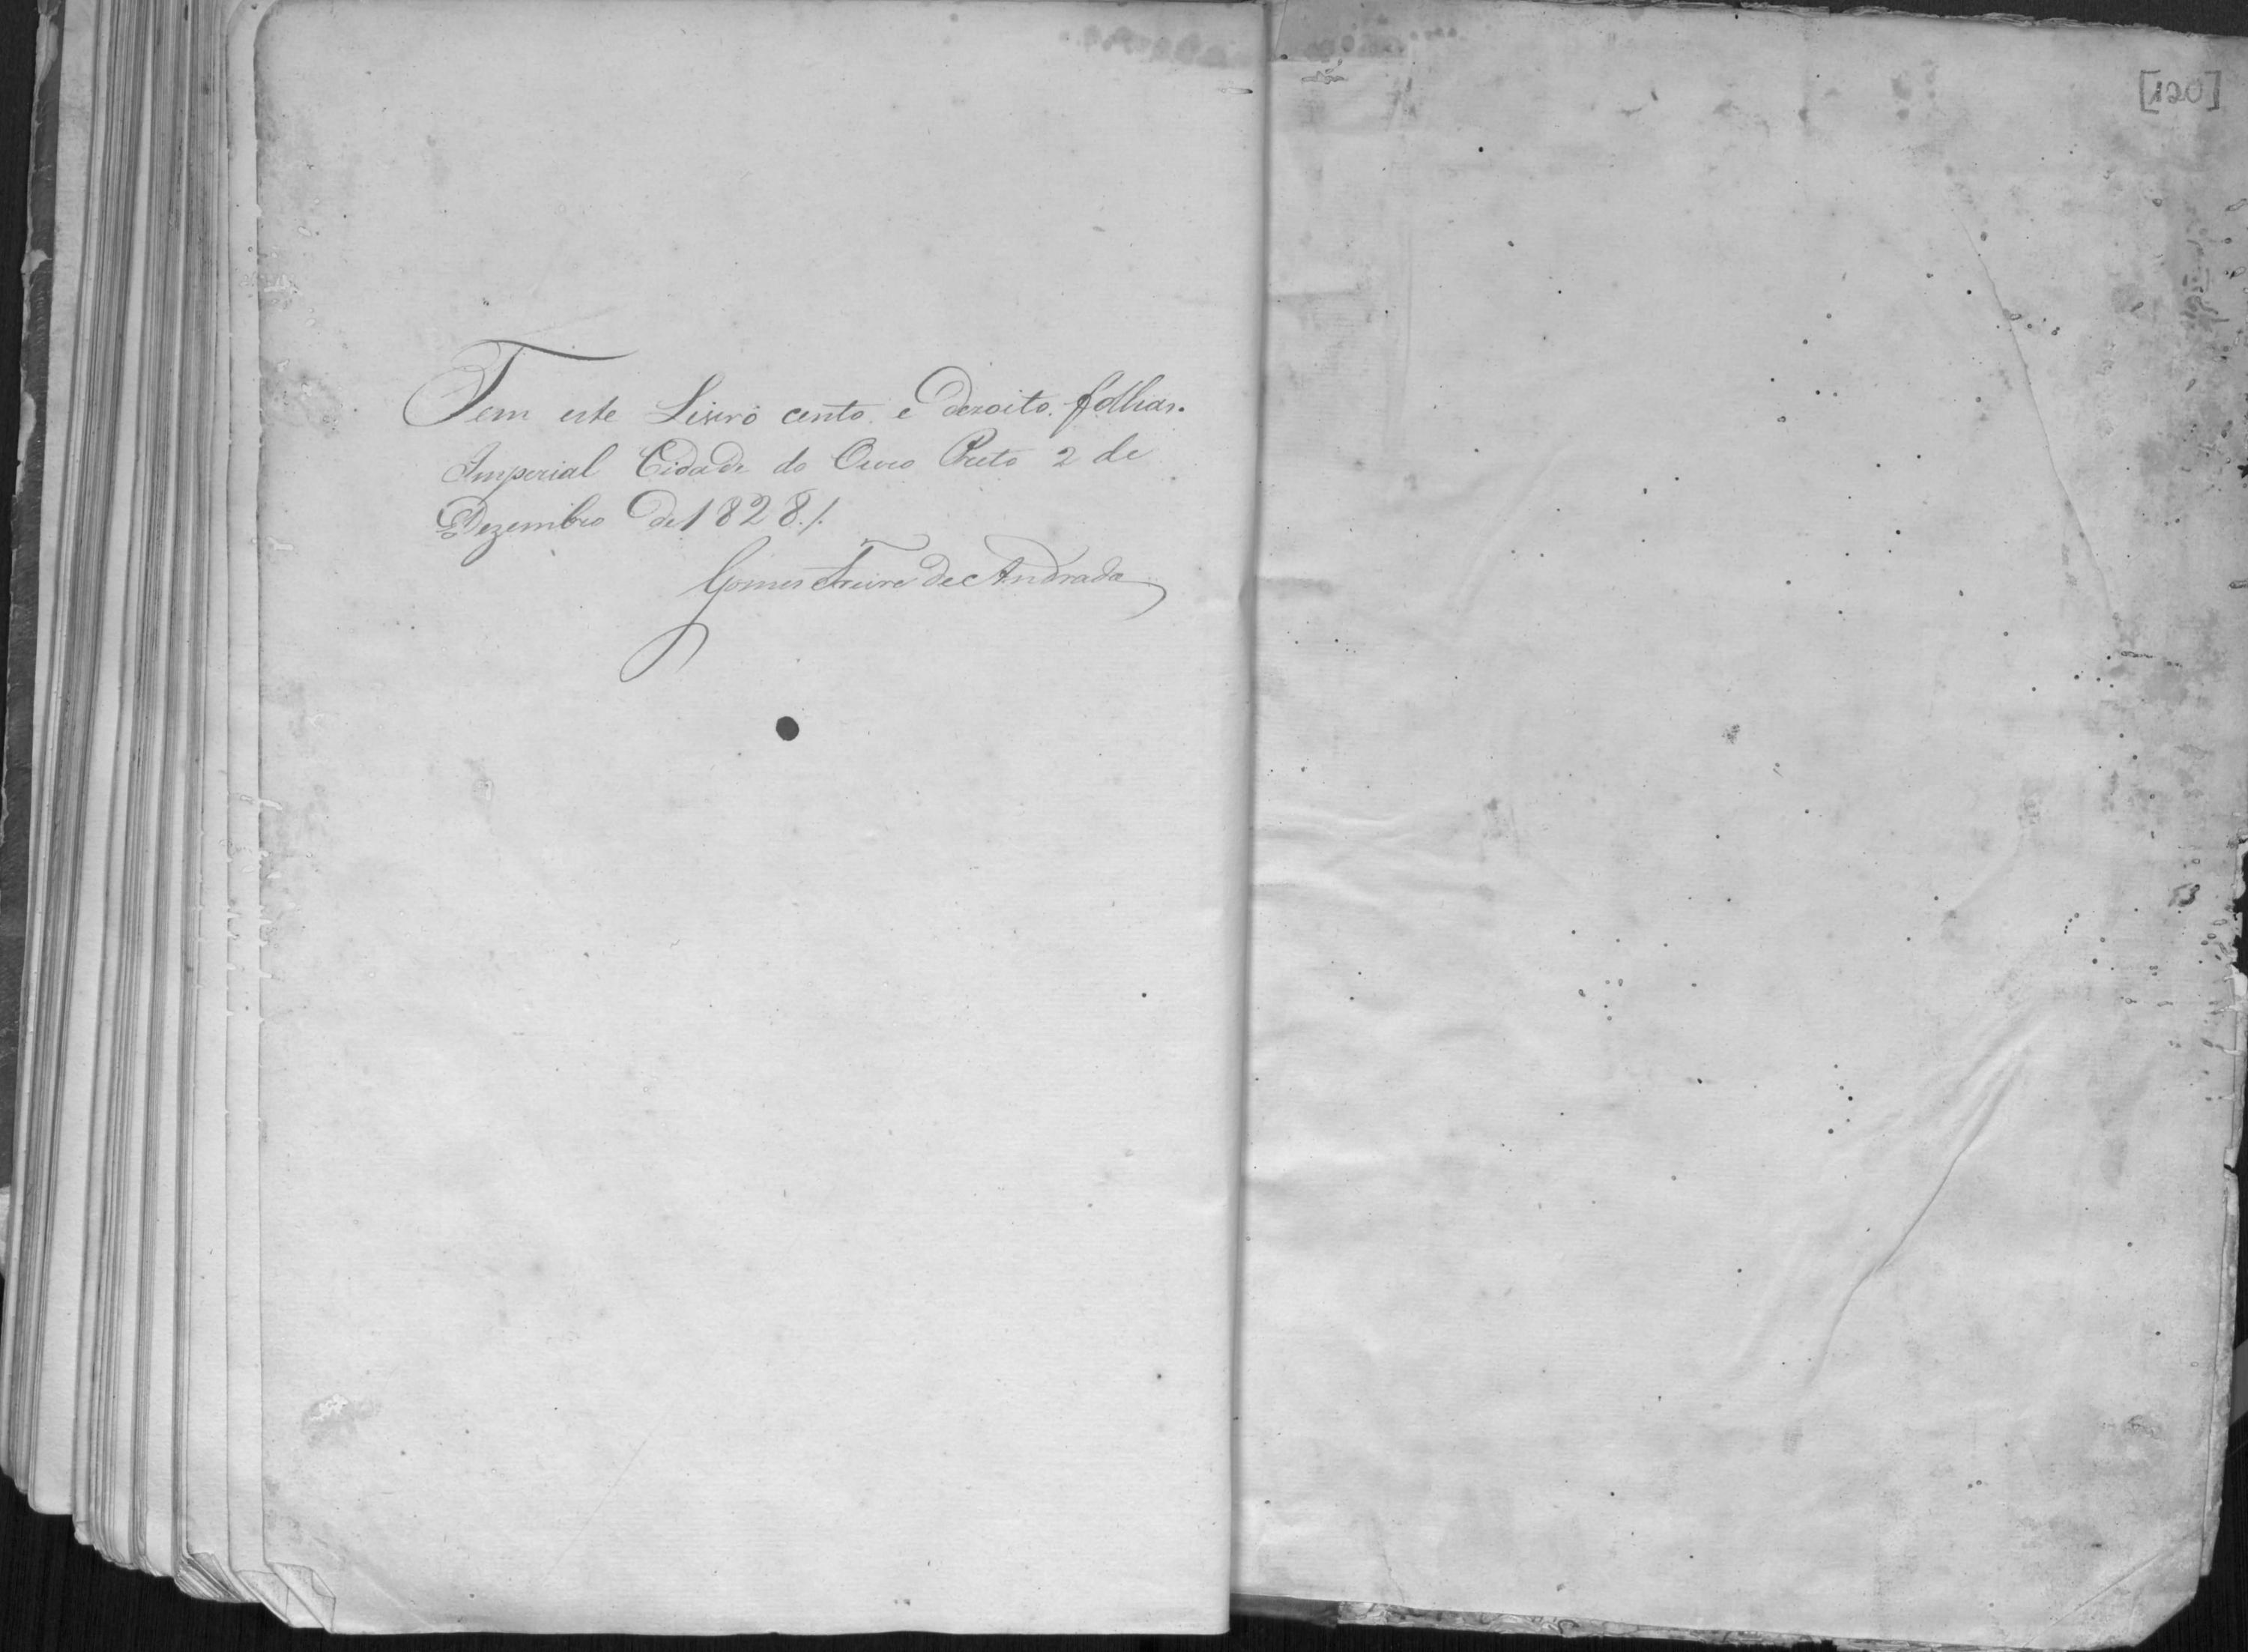 Tem este Livro cento e dezoito folhas.
Imperial Cidade do Ouro Preto 2 de
Dezembro de 1828./.
Gomes Freire de Andrada
[120]